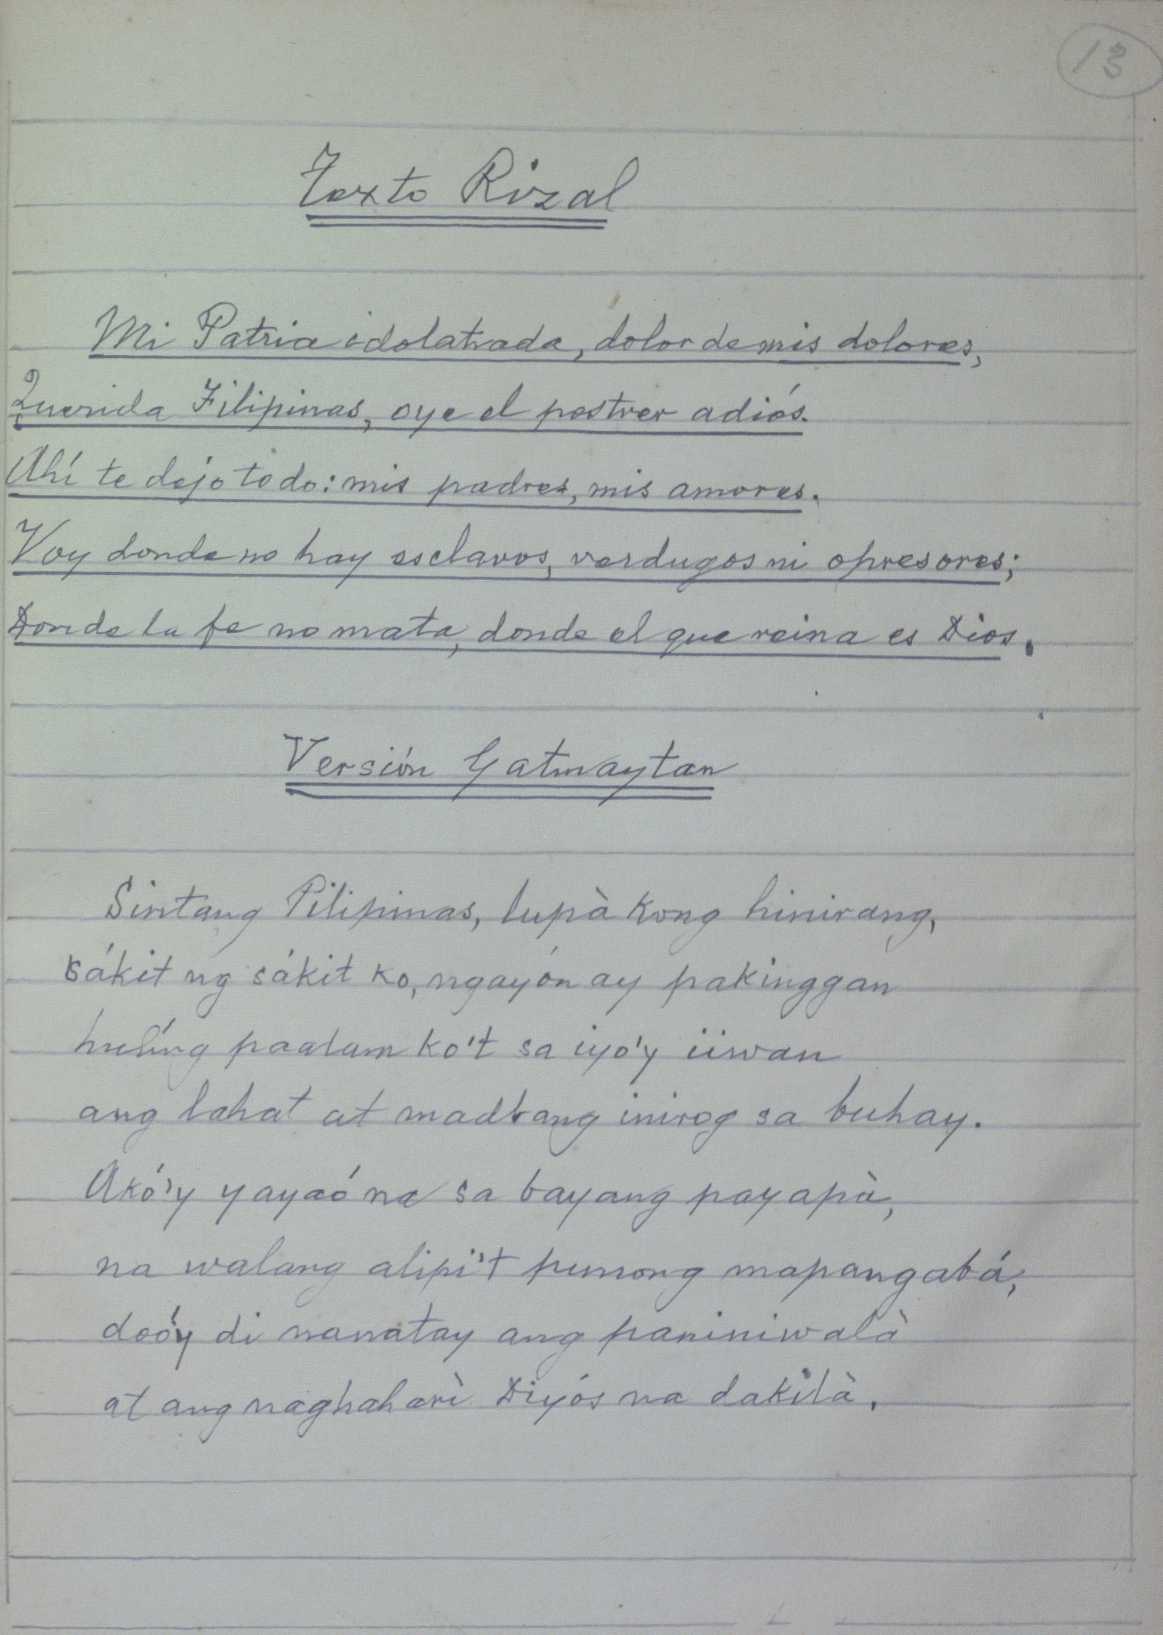 13
Texto Rizal
Mi Patria idolatrada, dolor de mis dolores,
Querida Filipinas, oye el postrer adiós.
Ahí te dejo todo: mis padres, mis amores.
Voy donde no hay esclavos, verdugos ni opresores;
Donde la fe no mata, donde el que reina es Dios.
Versión Gatmaytan
Sintang Pilipinas, lupà kong hinirang,
sákit ng sákit ko, ngayón ay pakinggan
hulíng paalam ko't sa iyo'y iiwan
ang lahat at madlang inirog sa buhay.
Akó'y yayaó na sa bayang payapà,
na walang alipi't punong mapangabá,
doó'y di nanatay ang paniniwalà
at ang naghaharì Diyós na dakilà.